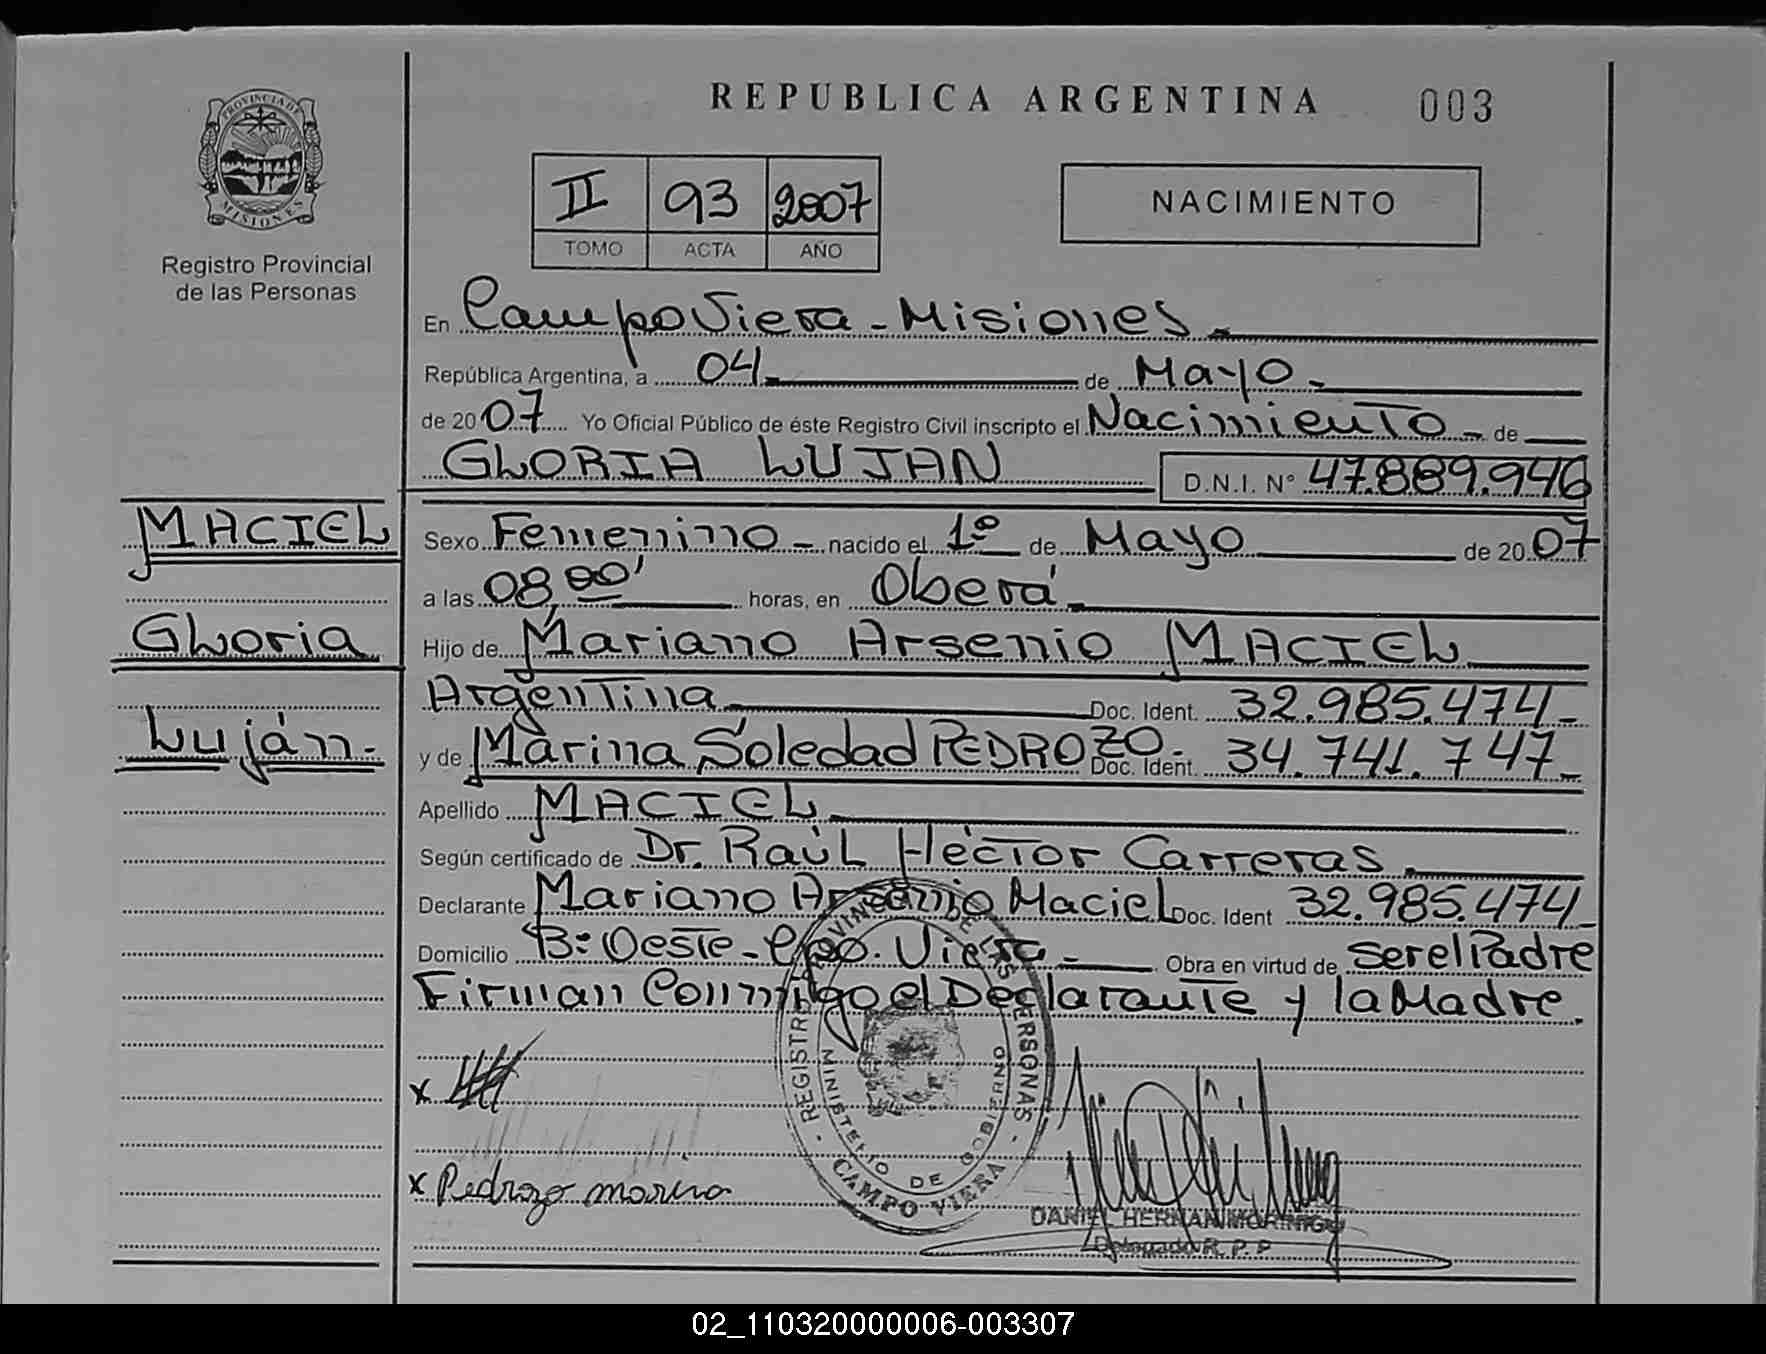 REPUBLICA ARGENTINA 003
PROVINCIA DE
MISIONES
Registro Provincial
de las Personas
II 93 2007
TOMO ACTA AÑO
NACIMIENTO
En Campo Viera - Misiones
República Argentina, a 04 de Mayo
de 2007 Yo Oficial Público de éste Registro Civil inscripto el Nacimiento de
GLORIA LUJAN D.N.I. N° 47.889.946
MACIEL
Gloria
Luján.
Sexo Femenino nacido el 1º de Mayo de 2007
a las 08,00' horas, en Oberá
Hijo de Mariano Arsenio MACIEL
Argentina Doc. Ident. 32.985.474
y de Marina Soledad PEDROZO. Doc. Ident. 34.741.747
Apellido MACIEL
Según certificado de Dr. Raúl Héctor Carreras.
Declarante Mariano Arsenio Maciel Doc. Ident 32.985.474
Domicilio Bº: Oeste - Cpo. Viera Obra en virtud de ser el Padre
Firman Conmigo el Declarante y la Madre.
x
x Pedrozo marina
REGISTRO PROVINCIAL DE LAS PERSONAS
MINISTERIO DE GOBIERNO
CAMPO VIERA
DANIEL HERNAN MORINIGO
Delegado R. P. P
02_110320000006-003307